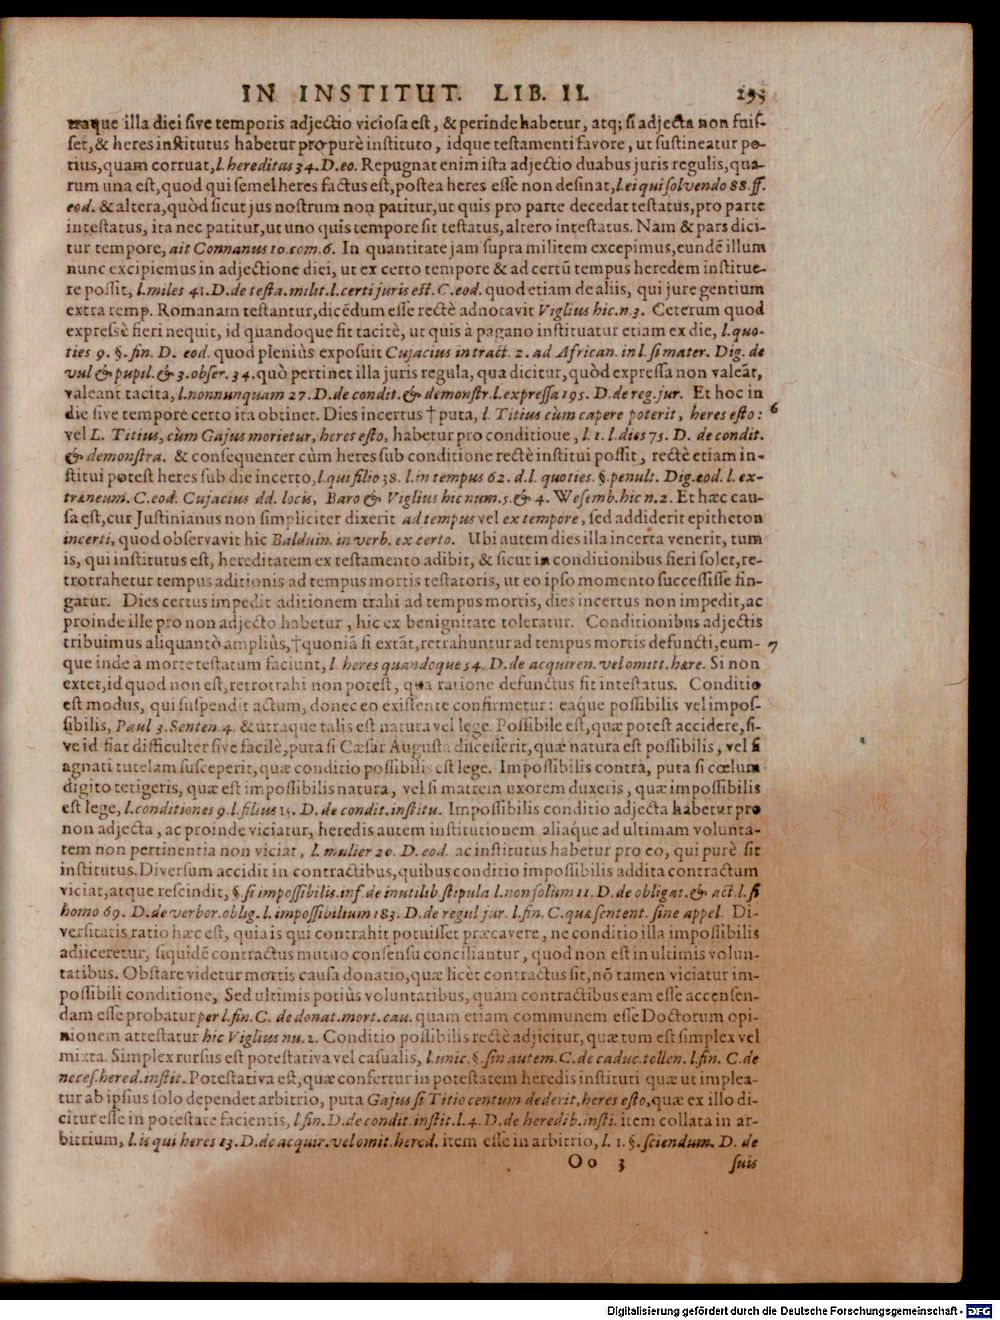 IN INSTITUT. LIB. II. 295
traque illa diei sive temporis adjectio viciosa est, & perinde habetur, atq; si adjecta non fuis-
set, & heres institutus habetur pro purè instituto, idque testamenti favore, ut sustineatur po-
tius, quam corruat, l. hereditas 34. D. eo. Repugnat enim ista adjectio duabus juris regulis, qua-
rum una est, quod qui semel heres factus est, postea heres esse non desinat, l. ei qui solvendo 88. ff.
eod. & altera, quòd sicut jus nostrum non patitur, ut quis pro parte decedat testatus, pro parte
intestatus, ita nec patitur, ut uno quis tempore sit testatus, altero intestatus. Nam & pars dici-
tur tempore, ait Connanus 10. com. 6. In quantitate jam supra militem excepimus, eundẽ illum
nunc excipiemus in adjectione diei, ut ex certo tempore & ad certũ tempus heredem institue-
re possit, l. miles 41. D. de testa. milit. l. certi juris est. C. eod. quod etiam de aliis, qui jure gentium
extra remp. Romanam testantur, dicẽdum esse rectè adnotavit Viglius hic. n. 3. Ceterum quod
expressè fieri nequit, id quandoque fit tacitè, ut quis à pagano instituatur etiam ex die, l. quo-
ties 9. §. fin. D. eod. quod pleniùs exposuit Cujacius in tract. 2. ad African. in l. si mater. Dig. de
vul & pupil. & 3. obser. 34. quò pertinet illa juris regula, qua dicitur, quòd expressa non valeãt,
valeant tacita, l. nonnunquam 27. D. de condit. & demonstr. l. expressa 195. D. de reg. jur. Et hoc in
die sive tempore certo ita obtinet. Dies incertus † puta, l. Titius cùm capere poterit, heres esto: 6
vel L. Titius, cùm Gajus morietur, heres esto, habetur pro conditione, l. 1. l. dies 75. D. de condit.
& demonstra. & consequenter cùm heres sub conditione rectè institui possit, rectè etiam in-
stitui potest heres sub die incerto, l. qui filio 38. l. in tempus 62. d. l. quoties. §. penult. Dig. eod. l. ex-
traneum. C. eod. Cujacius dd. locis, Baro & Viglius hic num. 5. & 4. Wesemb. hic n. 2. Et hæc cau-
sa est, cur Justinianus non simpliciter dixerit ad tempus vel ex tempore, sed addiderit epitheton
incerti, quod observavit hic Balduin. in verb. ex certo. Ubi autem dies illa incerta venerit, tum
is, qui institutus est, hereditatem ex testamento adibit, & sicut in conditionibus fieri solet, re-
trotrahetur tempus aditionis ad tempus mortis testatoris, ut eo ipso momento successisse fin-
gatur. Dies certus impedit aditionem trahi ad tempus mortis, dies incertus non impedit, ac
proinde ille pro non adjecto habetur, hic ex benignitate toleratur. Conditionibus adjectis
tribuimus aliquantò ampliùs, † quoniã si extãt, retrahuntur ad tempus mortis defuncti, eum- 7
que inde à morte testatum faciunt, l. heres quandoque 54. D. de acquiren. vel omitt. hære. Si non
extet, id quod non est, retrotrahi non potest, qua ratione defunctus fit intestatus. Conditio
est modus, qui suspendit actum, donec eo existente confirmetur: eaque possibilis vel impos-
sibilis, Paul 3. Senten. 4. & utraque talis est natura vel lege. Possibile est, quæ potest accidere, si-
ve id fiat difficulter sive facilè, puta si Cæsar Augusta discesserit, quæ natura est possibilis, vel si
agnati tutelam susceperit, quæ conditio possibilis est lege. Impossibilis contrà, puta si cœlum
digito tetigeris, quæ est impossibilis natura, vel si matrem uxorem duxeris, quæ impossibilis
est lege, l. conditiones 9. l. filius 15. D. de condit. institu. Impossibilis conditio adjecta habetur pro
non adjecta, ac proinde viciatur, heredis autem institutionem aliaque ad ultimam volunta-
tem non pertinentia non viciat, l. mulier 20. D. eod. ac institutus habetur pro eo, qui purè sit
institutus. Diversum accidit in contractibus, quibus conditio impossibilis addita contractum
viciat, atque rescindit, §. si impossibilis. inf. de inutilib. stipula l. non solùm 11. D. de obligat. & act. l. si
homo 69. D. de verbor. oblig. l. impossibilium 183. D. de regul jur. l. fin. C. quæ sentent. sine appel. Di-
versitatis ratio hæc est, quia is qui contrahit potuisset præcavere, ne conditio illa impossibilis
adiiceretur, siquidẽ contractus mutuo consensu conciliantur, quod non est in ultimis volun-
tatibus. Obstare videtur mortis causa donatio, quæ licèt contractus sit, nõ tamen viciatur im-
possibili conditione, Sed ultimis potiùs voluntatibus, quàm contractibus eam esse accensen-
dam esse probatur per l. fin. C. de donat. mort. cau. quam etiam communem esse Doctorum opi-
nionem attestatur hic Viglius nu. 2. Conditio possibilis rectè adjicitur, quæ tum est simplex vel
mixta. Simplex rursus est potestativa vel casualis, l. unic. §. sin autem. C. de caduc. tollen. l. fin. C. de
neces. hered. instit. Potestativa est, quæ confertur in potestatem heredis instituti quæ ut implea-
tur ab ipsius solo dependet arbitrio, puta Gajus si Titio centum dederit, heres esto, quæ ex illo di-
citur esse in potestate facientis, l. fin. D. de condit. instit. l. 4. D. de heredib. insti. item collata in ar-
bitrium, l. is qui heres 13. D. de acquir. vel omit. hered. item esse in arbitrio, l. 1. §. sciendum. D. de
Oo 3 suis
Digitalisierung gefördert durch die Deutsche Forschungsgemeinschaft - DFG